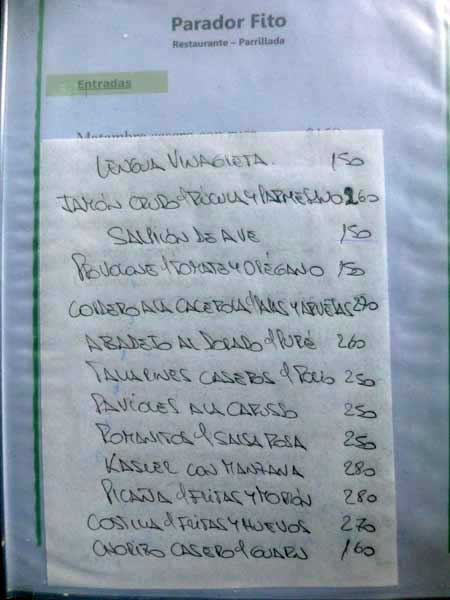 Parador Fito
Restaurante – Parrillada
Entradas
LENGUA VINAGRETA. 150
JAMÓN CRUDO c/RÚCULA Y PARMESANO 260
SALPICÓN DE AVE 150
PROVOLONE c/TOMATE Y ORÉGANO 150
CORDERO A LA CACEROLA c/PAPAS Y ARVEJAS 270
ABADEJO AL DORADO c/PURÉ 260
TALLARINES CASEROS c/POLLO 250
RAVIOLES A LA CARUSO 250
ROMANITOS c/SALSA ROSA 250
KASLER CON MANZANA 280
PICAÑA c/FRITAS Y MORRÓN 280
COSTILLA c/FRITAS Y HUEVOS 270
CHORIZO CASERO c/GUARN 160